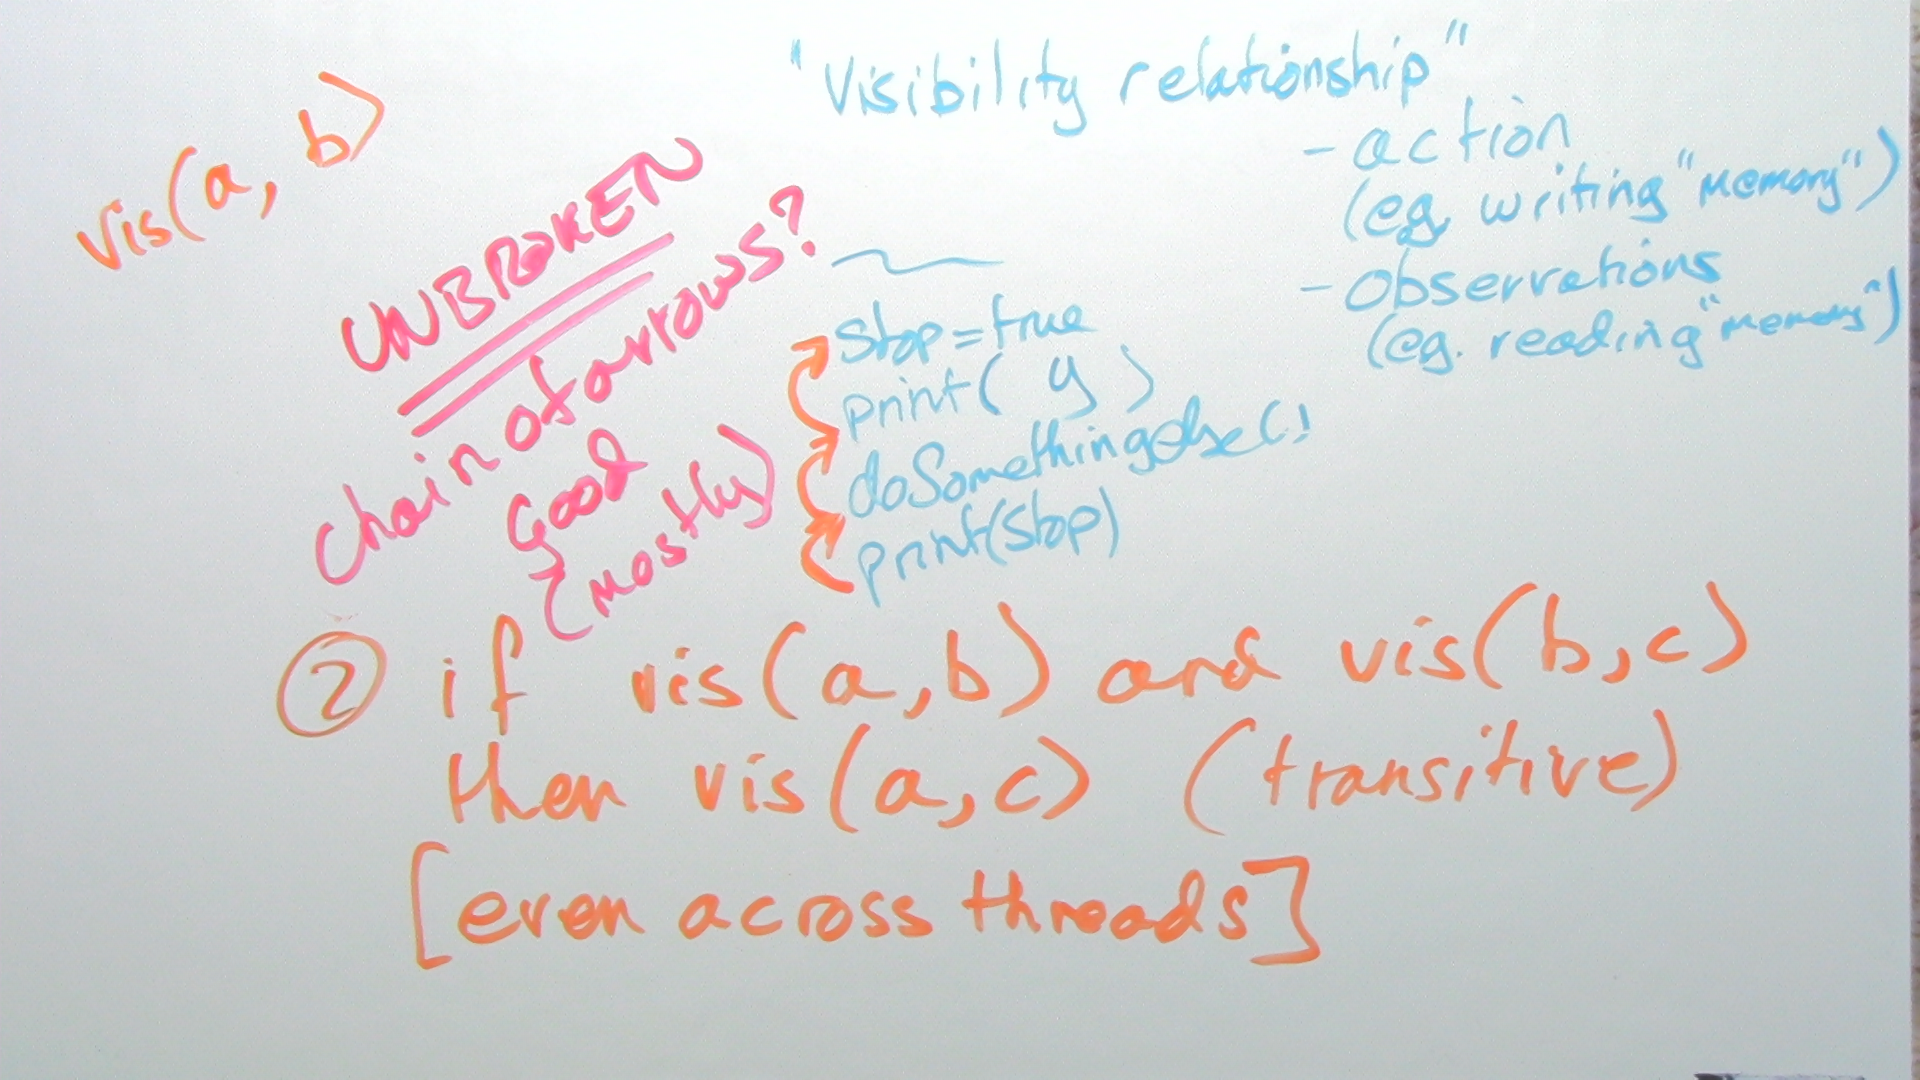 "Visibility relationship"
vis(a, b)
- action
(eg. writing "memory")
- Observations
(eg. reading "memory")
UNBROKEN
chain of arrows?
Good
(mostly)
Stop=true
print( y )
doSomethingelse()
print(Stop)
② if vis(a,b) and vis(b,c)
then vis(a,c) (transitive)
[even across threads]